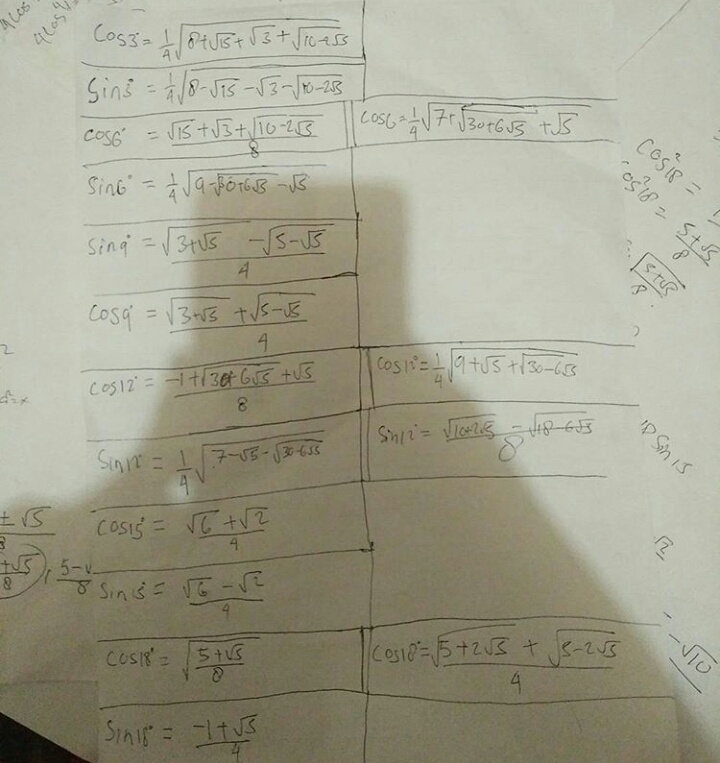 4cos
4cos
Cos3° = 1/4 √(8+√15+√3+√(10-2√5))
Sin3° = 1/4 √(8-√15-√3-√(10-2√5))
cos6° = (√15+√3+√(10-2√5))/8 cos6 = 1/4 √(7+√(30+6√5)+√5)
Sin6° = 1/4 √(9-√(30+6√5)-√5)
Sin9° = (√(3+√5) -√(5-√5))/4
cos9° = (√(3+√5) +√(5-√5))/4
cos12° = (-1+√(30+6√5)+√5)/8 cos12° = 1/4 √(9+√5+√(30-6√5))
Sin12° = 1/4 √(7-√5-√(30-6√5)) Sin12° = (√(10+2√5) - √(18-6√5))/8
cos15° = (√6+√2)/4
Sin15° = (√6-√2)/4
cos18° = √((5+√5)/8) cos18° = (√(5+2√5) + √(5-2√5))/4
Sin18° = (-1+√5)/4
cos²18° =
cos²18° = (5+√5)/8
√((5+√5)/8)
Sin15
√2
-√10
± √5
+√5/8 , 5-√